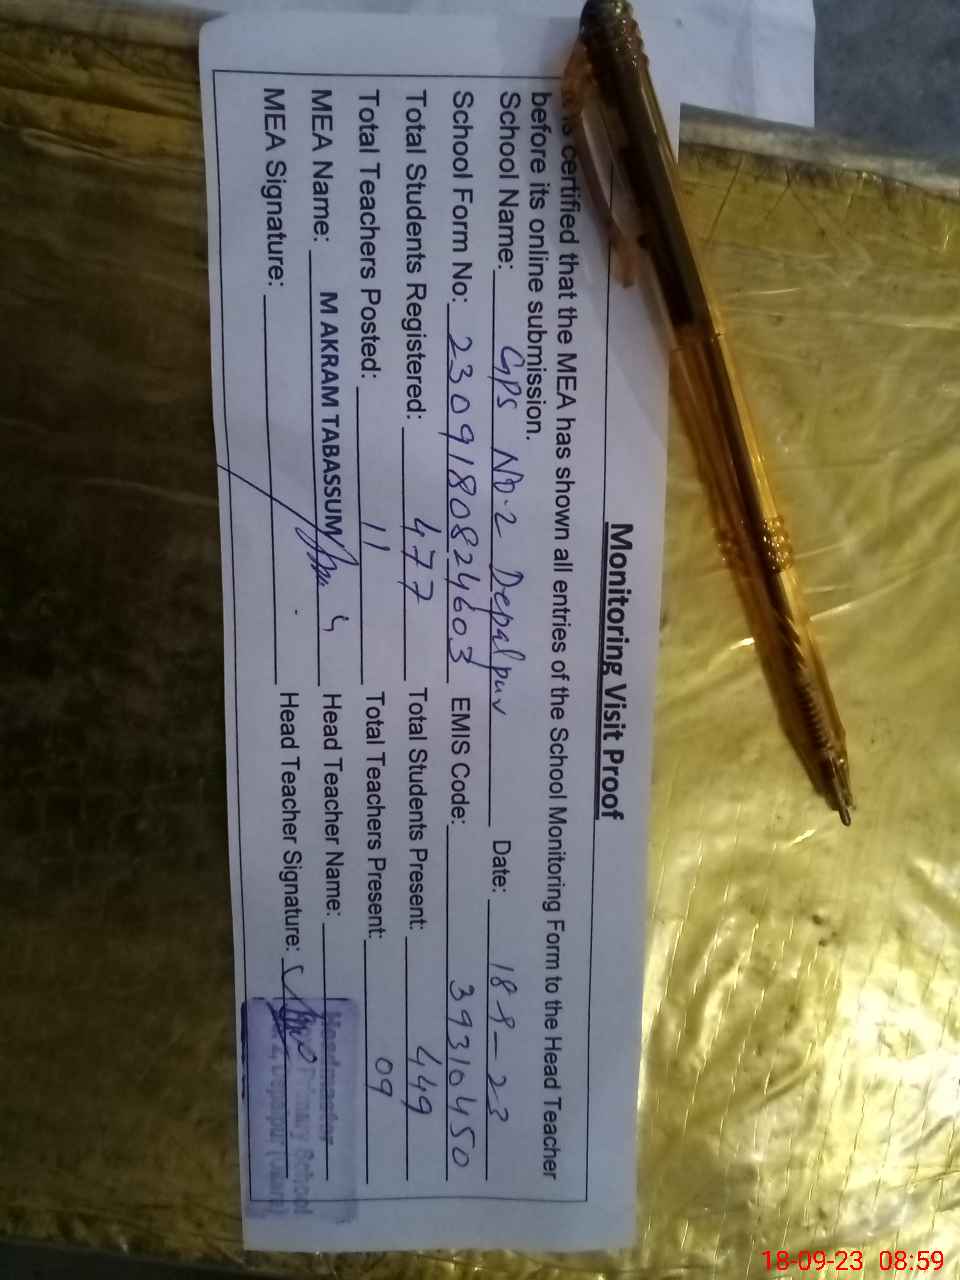 Monitoring Visit Proof
is certified that the MEA has shown all entries of the School Monitoring Form to the Head Teacher
before its online submission.
School Name: GPS NO.2 Depalpur Date: 18-9-23
School Form No: 2309180824603 EMIS Code: 39310450
Total Students Registered: 477 Total Students Present: 449
Total Teachers Posted: 11 Total Teachers Present: 09
MEA Name: M AKRAM TABASSUM Head Teacher Name:
MEA Signature: Head Teacher Signature:
Headmaster
Primary School
Depalpur
18-09-23 08:59